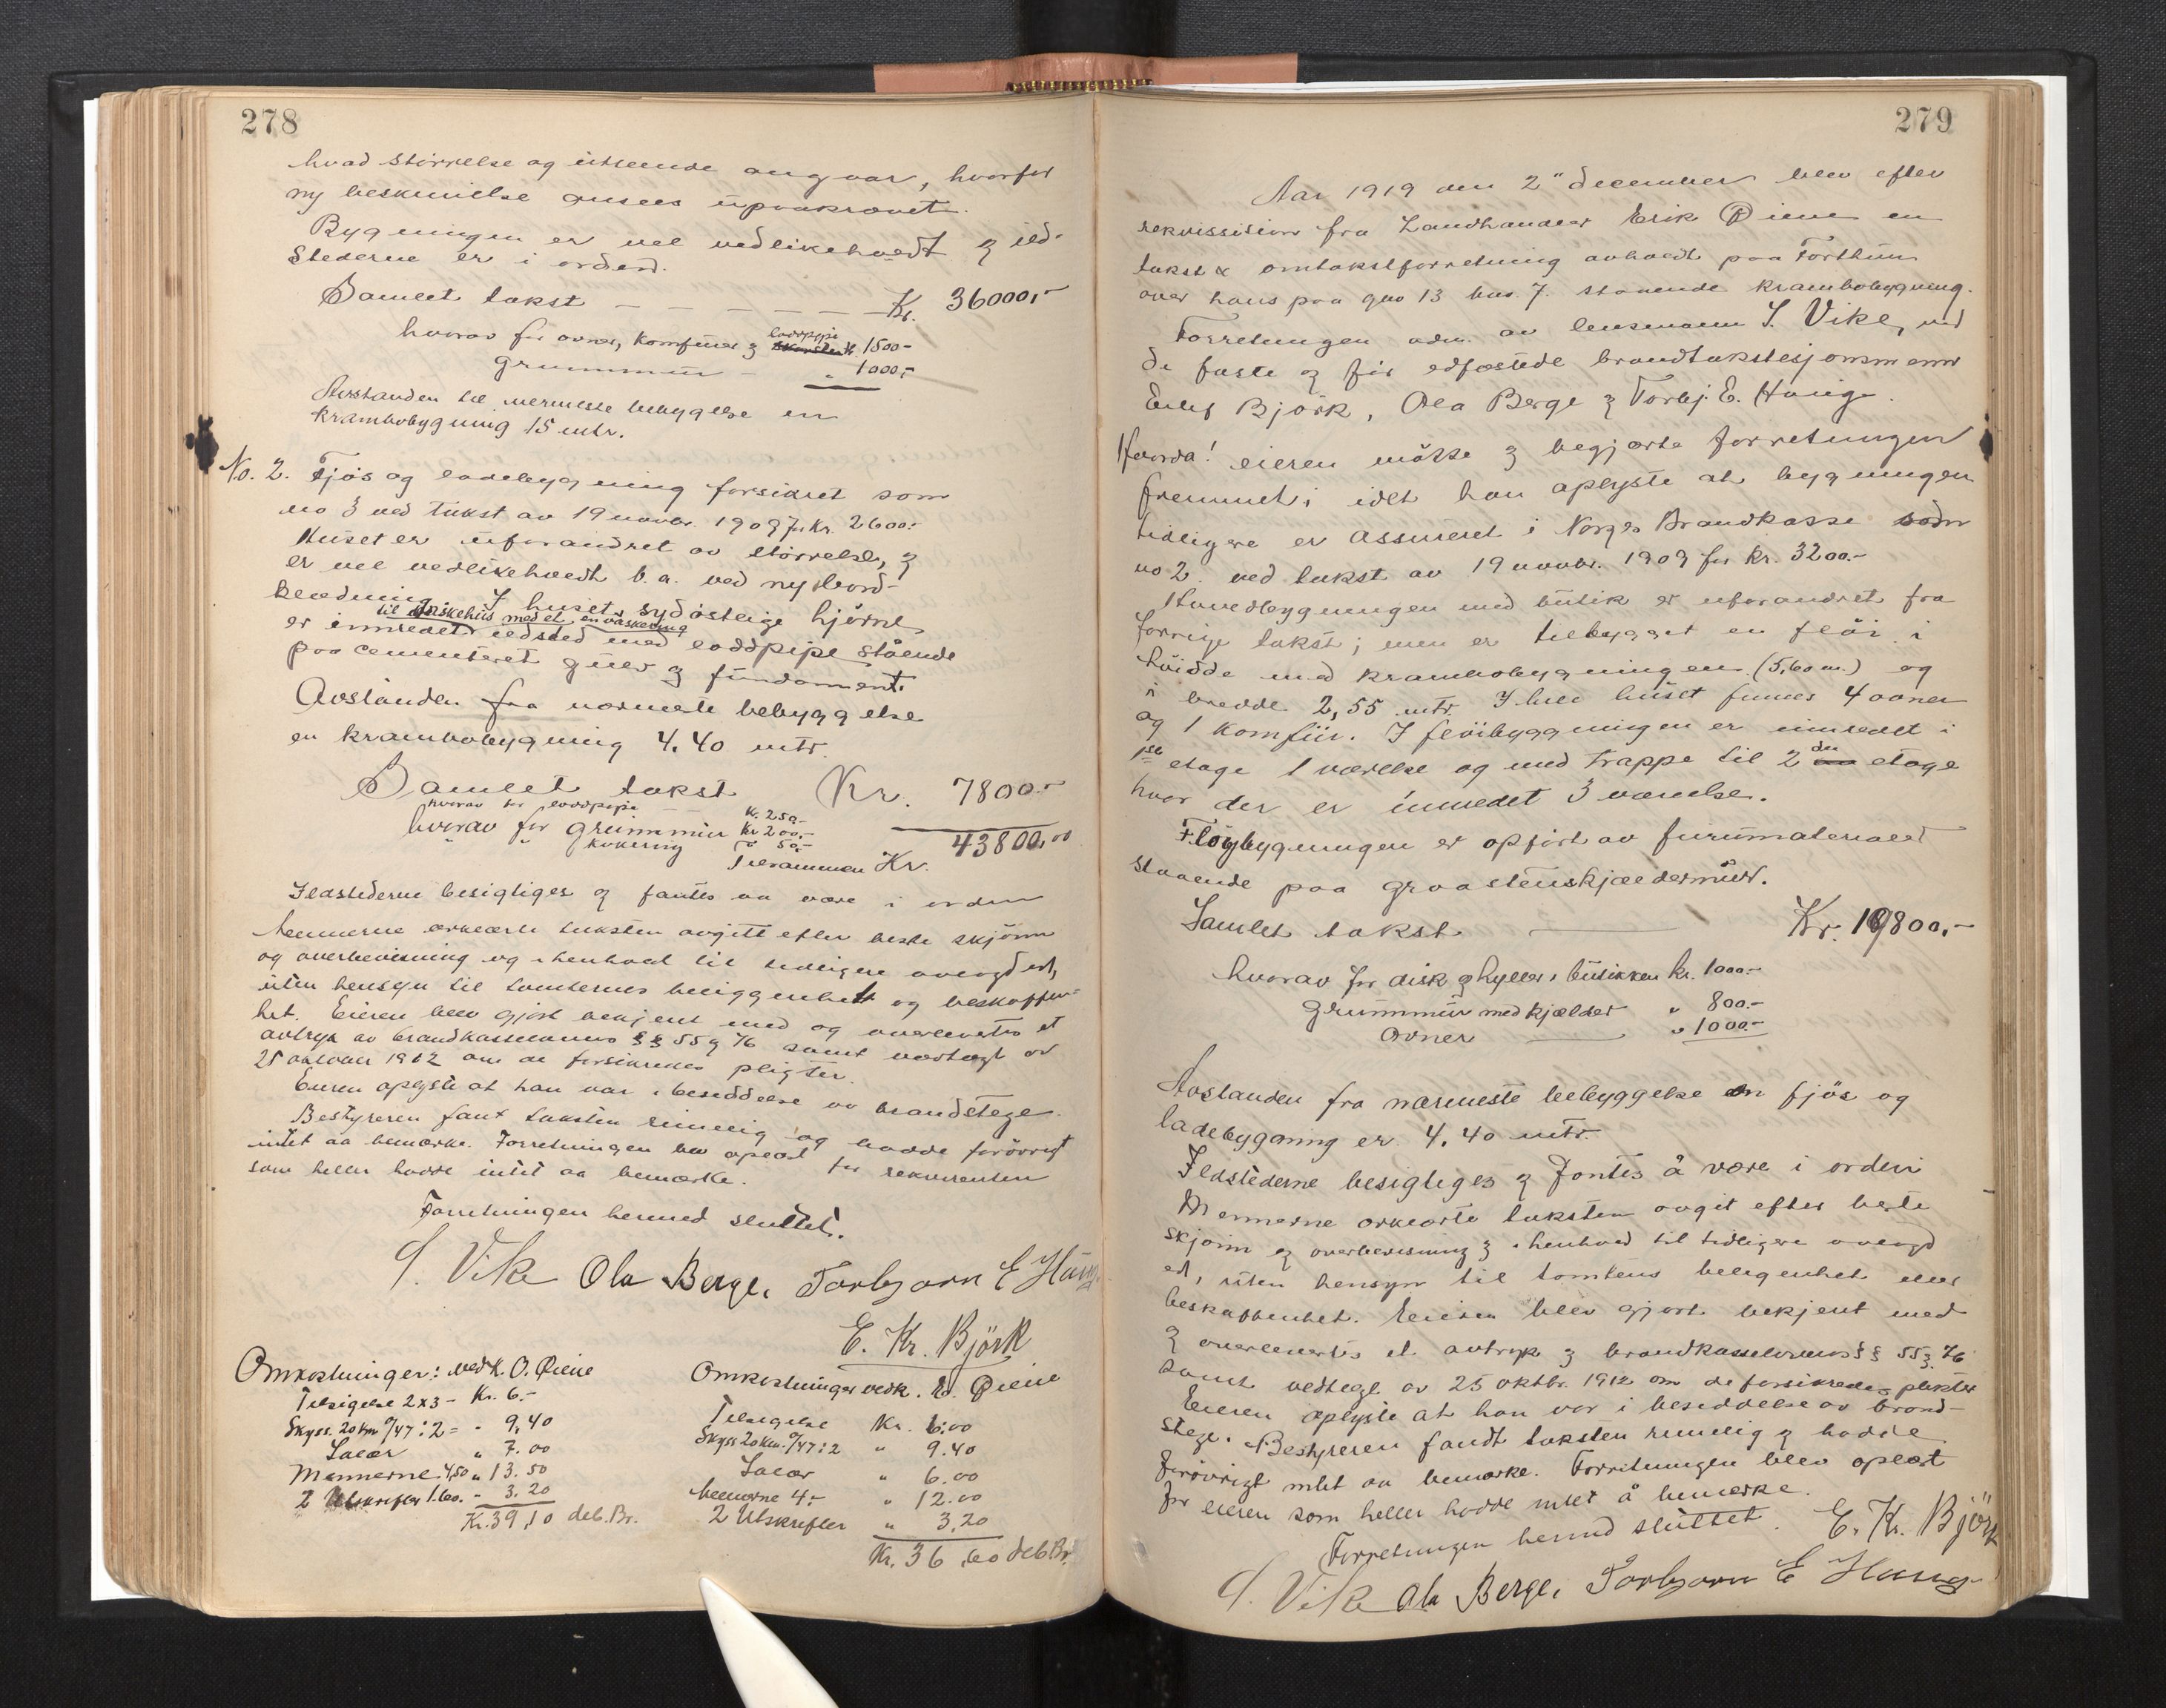 278
hvad störrelse og utseende angaar, hvorfor
ny beskrivelse ansees upaakrævet.
Bygningen er vel vedlikeholdt og ild-
stederne er i orden.
Samlet takst — — — — — — Kr. 36000,-
hvorav for ovner, komfurer og loddpipe kr. 1500-
grunnmur — „ 1000,-
Avstanden til nermeste bebyggelse en
krambobygning 15 mtr.
No. 2. Fjøs og ladebygning forsikret som
no 3 ved takst av 19 novbr. 1909 for Kr. 2600.-
Huset er uforandret av störrelse, og
er vel vedlikeholdt b. a. ved ny bord-
klædning. I husets sydöstlige hjörne
til eldskehus med et en vaskering
er innredet ildsted med loddpipe stående
paa cementeret gulv og fundament.
Avstanden fra nærmeste bebyggelse
en krambobygning 4.40 mtr.
Samlet takst Kr. 7800.-
hvorav for loddpipe Kr. 250.-
hvorav for grunnmur Kr 200,-
„ „ kokering „ 50,-
Tilsammen Kr. 43800,00
Ildstederne besigtiges og fantes aa være i orden
Mennerne erklærte taksten avgitt efter beste skjönn
og overbevisning og i henhold til tidligere avlagt ed,
uten hensyn til tomternes beliggenhet og beskaffen-
het. Eieren blev gjort bekjent med og overlevertes et
avtryk av brandkasselovens §§ 55 og 76 samt vedtægt av
25 oktober 1912 om de forsikredes pligter.
Eieren oplyste at han var i besiddelse av brandstege.
Bestyreren fant taksten rimelig og hadde forövrigt
intet aa bemærke. Forretningen blev oplæst for rekvirenten
som heller hadde intet aa bemærke.
Forretningen hermed sluttet.
S. Vike Ola Berge, Torbjørn E Haug.
E. Kr. Björk
Omkostninger: vedk. O. Øiene
Tilsigelse 2x3 - Kr. 6.-
Skyss. 20 km a/47:2 = „ 9,40
Salær „ 7.00
Mennerne 4,50 „ 13.50
2 Utskrifter 1.60. - 3.20
Kr. 39,10 deb. Br.
Omkostninger vedk. E. Øiene
Tilsigelse Kr. 6.00
Skyss 20 km. a/47:2 „ 9.40
Salær „ 6.00
Mennerne 4:- „ 12.00
2 Utskrifter „ 3,20
Kr. 36,60 deb Br.
279
Aar 1919 den 2" december blev efter
rekvissision fra Landhandler Erik Øiene en
takst & omtakstforretning avholdt paa Forthun
over hans paa gno 13 bno. 7. staaende krambobygning.
Forretningen adm. av lensmann S. Vike, med
de faste og för edfæstede brandtakstesjönnmenn
Eilif Björk, Ola Berge og Torbj. E. Haug.
Hvorda! eieren mötte og begjærte forretningen
fremmet; idet han oplyste at bygningen
tidligere er assureret i Norges Brandkasse som
no 2. ved takst av 19 novbr. 1909 for kr. 3200.-
Hovedbygningen med butik er uforandret fra
forrige takst; men er tilbygget en flöi i
höidde med krambobygningen (5,60 m.) og
i bredde 2,55 mtr. I hele huset finnes 4 ovner
og 1 komfür. I flöibyggningen er innredt i
1ste etage 1 værelse og med trappe til 2den etage
hvor der er innredet 3 værelse.
Flöybygningen er opfört av furumateriale
staaende paa graastenskjældermur.
Samlet takst — Kr. 19800,-
hvorav for disk og hyller i butikken kr. 1000.-
Grunnmur med kjælder „ 800.-
Ovner — „ 1000.-
Avstanden fra nærmeste bebyggelse en fjös og
ladebygning er 4.40 mtr.
Ildstederne besigtiges og fantes å være i orden
Mennerne erklærte taksten avgit efter beste
skjønn og overbevisning og i henhold til tidligere avlagt
ed, uten hensyn til tomtens beligenhet eller
beskaffenhet. Eieren blev gjort bekjent med
og overlevertes et avtryk og brandkasselovens §§ 55 og 76
samt vedtegt av 25 oktbr. 1912 om de forsikredes plikter
Eieren oplyste at han var i besiddelse av brand-
stege. Bestyreren fandt taksten rimelig og hadde
forövrigt intet aa bemærke. Forretningen blev oplæst
for eieren som heller hadde intet å bemerke.
Forretningen hermed sluttet. E. Kr. Björk
S. Vike Ola Berge, Torbjørn E Haug